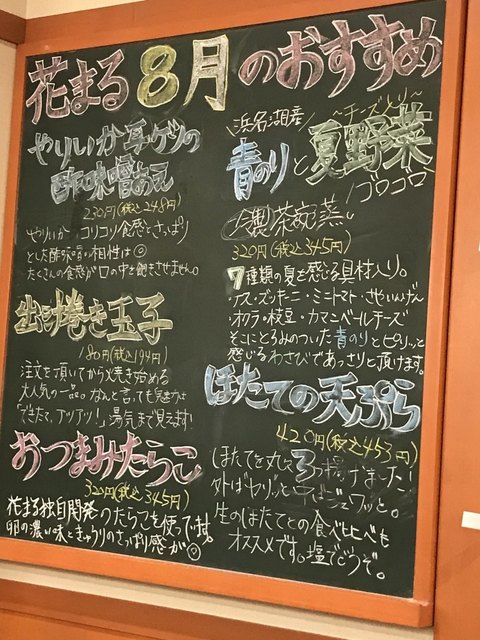 花まる8月のおすすめ
やりいか耳ゲソの
酢味噌あえ
230円(税込248円)
やりいか コリコリ食感とさっぱり
とした酢味噌の相性は◎
たくさんの食感が口の中を飽きさせません。
出し巻き玉子
180円(税込194円)
注文を頂いてから焼き始める
大人気の一品。なんと言っても気まぐれ
「できたて、アツアツ!」湯気まで見えます!
おつまみたらこ
320円(税込345円)
花まる独自開発のたらこを使ってます。
卵の濃い味ときゅうりのさっぱり感が◎
浜名湖産
青のりと
~チーズ入り~
夏野菜
ゴロゴロ
冷製茶碗蒸し
320円(税込345円)
7種類の夏を感じる具材入り。
・ナス・ズッキーニ・ミニトマト・さやいんげん
・オクラ・枝豆・カマンベールチーズ
そこにとろみのついた青のりとピリッと
感じるわさびであっさりと頂けます。
ほたての天ぷら
420円(税込453円)
ほたてを丸ごと3つ揚げました!
外はサクッと中はジュワッと。
生のほたてとの食べ比べも
オススメです。塩でどうぞ。